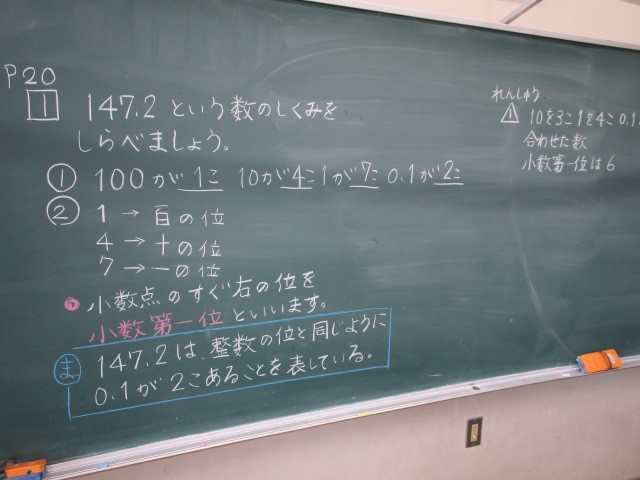 P20
1 147.2 という数のしくみを
しらべましょう。
① 100が1こ 10が4こ 1が7こ 0.1が2こ
② 1→百の位
4→十の位
7→一の位
小数点のすぐ右の位を
小数第一位といいます。
ま 147.2は、整数の位と同じように
0.1が2こあることを表している。
れんしゅう
1 10を3こ1を4こ0.1
合わせた数
小数第一位は6